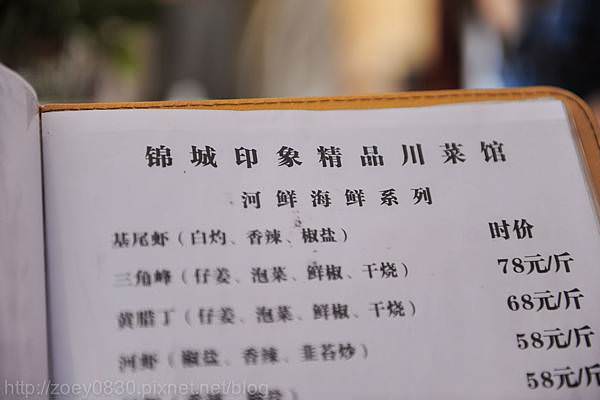 锦城印象精品川菜馆
河鲜海鲜系列
基尾虾（白灼、香辣、椒盐） 时价
三角峰（仔姜、泡菜、鲜椒、干烧） 78元/斤
黄腊丁（仔姜、泡菜、鲜椒、干烧） 68元/斤
河虾（椒盐、香辣、韭苔炒） 58元/斤
58元/斤
http://zoey0830.pixnet.net/blog